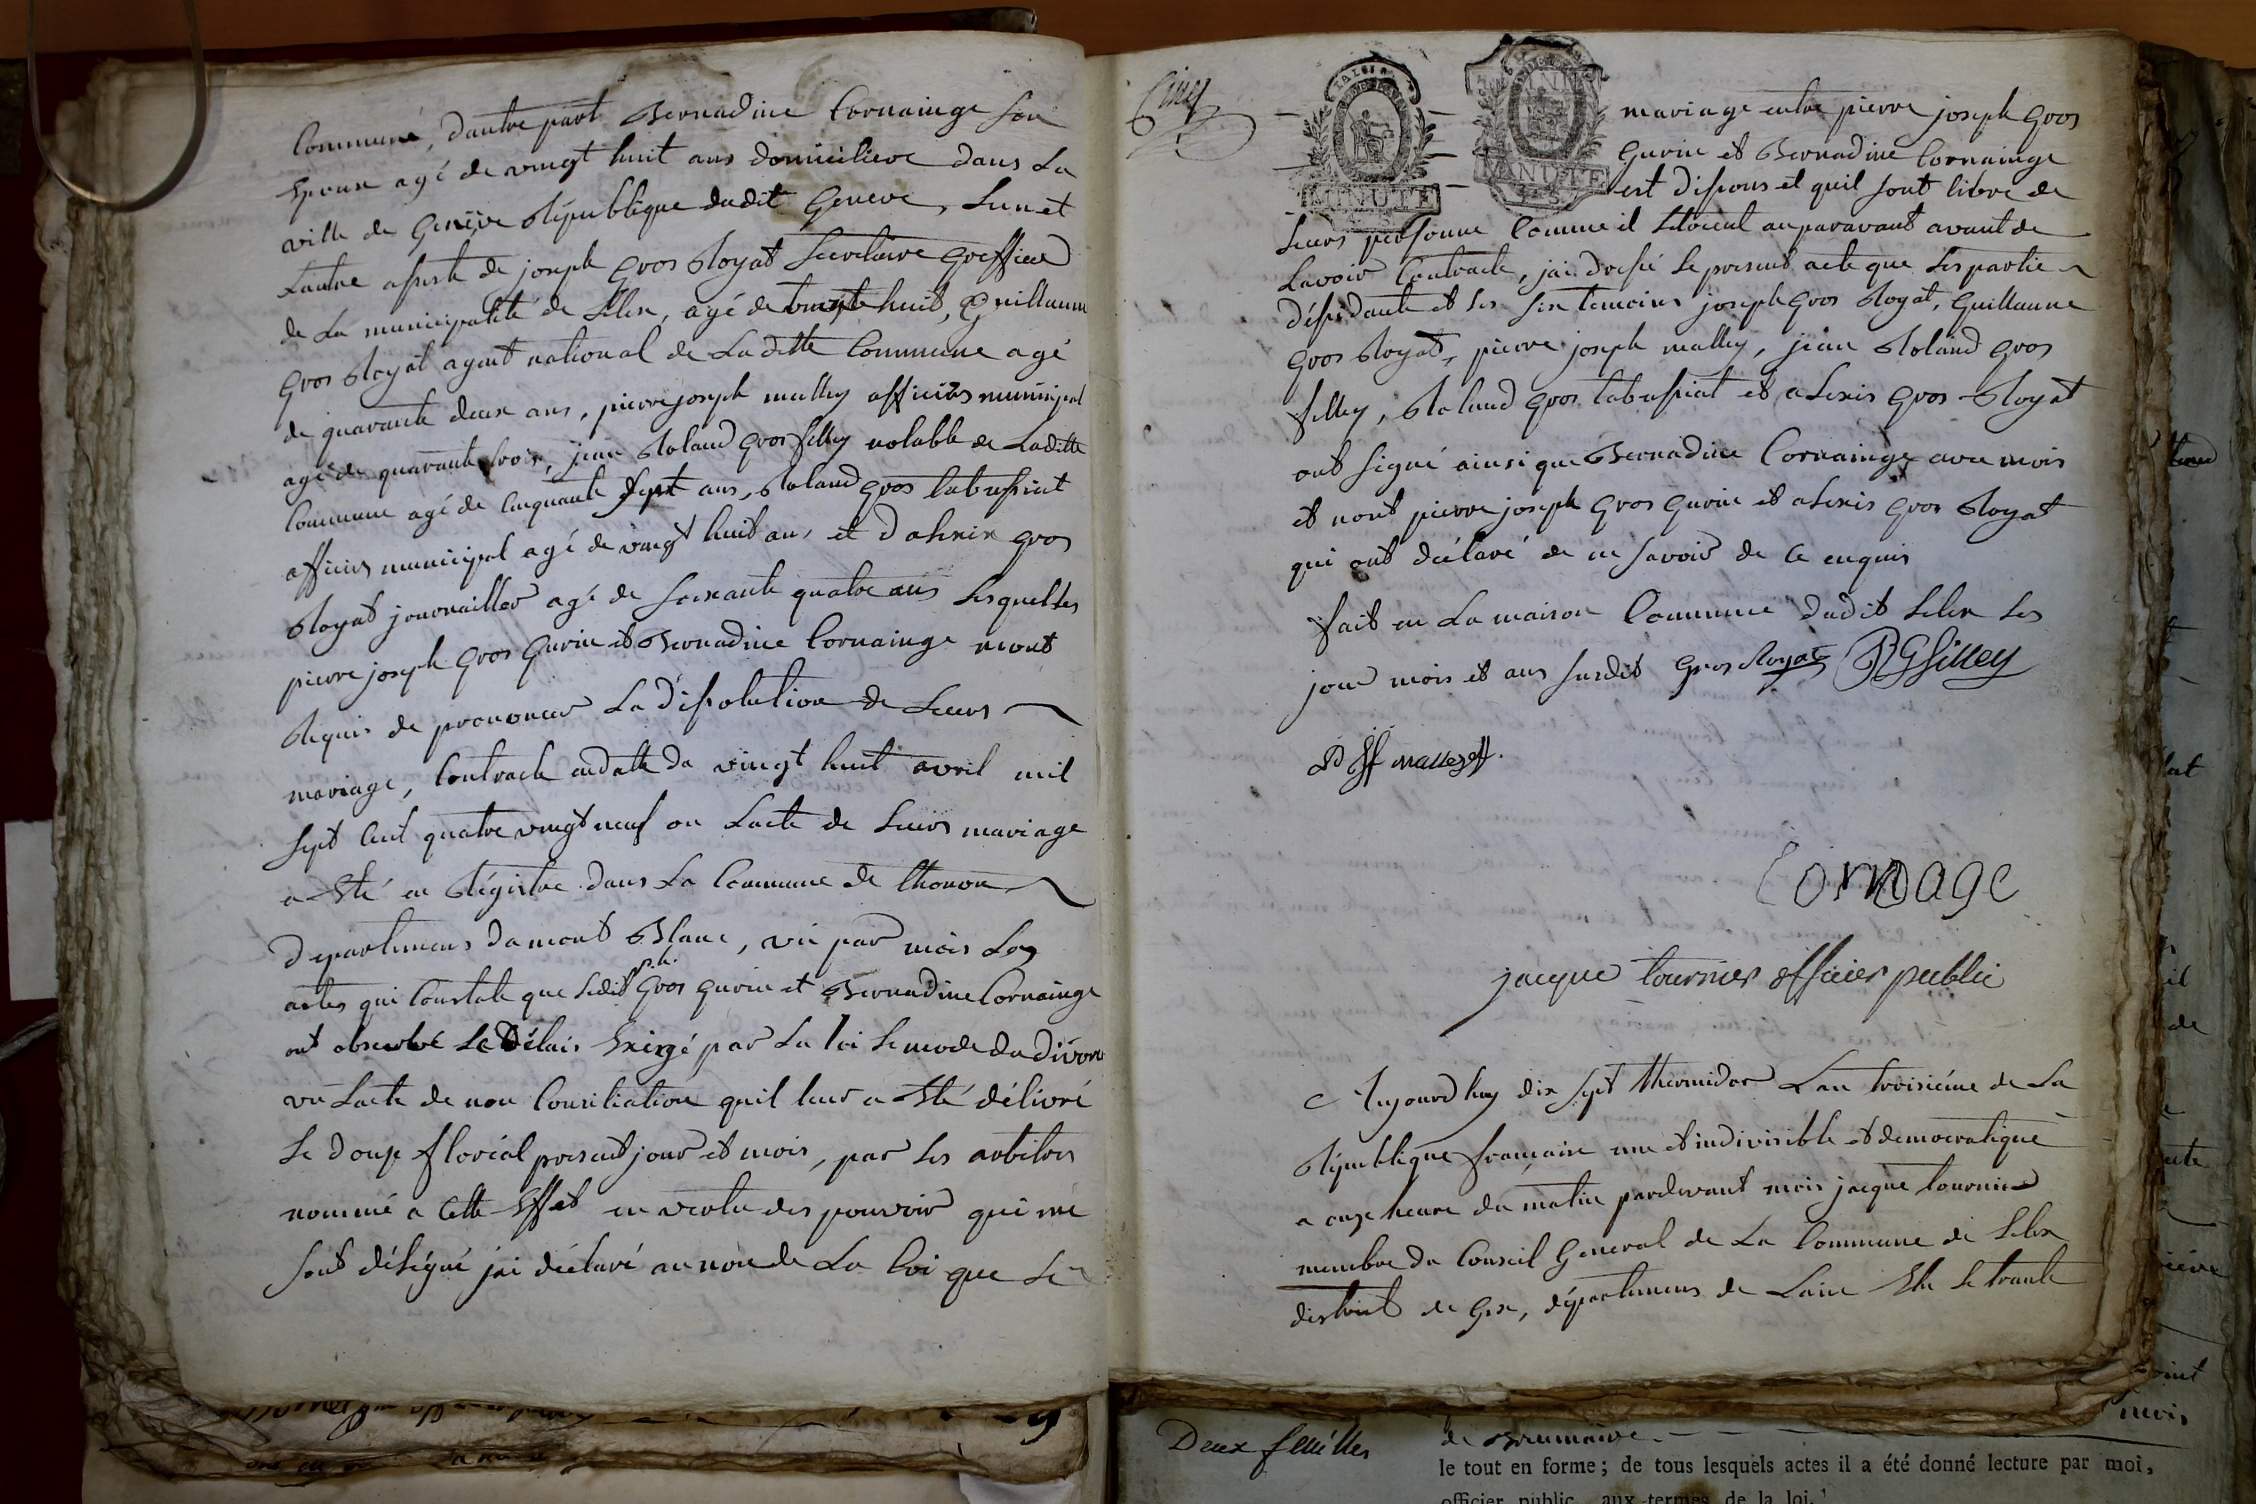 Commune, dautre part Bernadine Cornainge son
Epouse agé de vingt huit ans domiciliere dans La
ville de Genêve République dudit Geneve, Lun et
Lautre assisté de joseph Gros Royat Secretaire Greffier
de La municipalité de Lelex, agé de trente huit, Guillaume
Gros Royat agent national de La ditte Commune agé
de quarante deux ans, pierre joseph malley officiers municipal
agé de quarante trois, jean Roland Gros filley notable de Laditte
Commune agé de Cinquante Sept ans, Roland Gros
officiers municipal agé de vingt huit ans et d alexix Gros
Royat journaillier agé de soixante quatre ans Lesquelles
pierre joseph Gros Gurin et Bernadine Cornainge mont
Réquis de prononcer La dissolution de Leurs
mariage, Contracté endatte du vingt huit avril mil
sept Cent quatre vingt neuf ou Lacte de Leurs mariage
a Eté en Régistré dans La Commune de thonon
Departemens du mont Blanc, vû par mois Les
actes qui Constate que Ledit p.h. Gros Gurin et Bernadine Cornainge
ont observé Le Délais Exirgé par La loi Le mode du divorce
vû Lacte de non Consiliation quil leur a Eté délivré
Le douze floréal présent jour et mois, par Les arbitres
nommé a Cette Effet en vertu des pouvoir qui me
sont délégué jai déclaré au nom de La loi que Le
Cinq
LA LOI
MINUTE
MINUTE
mariage entre pierre joseph Gros
Gurin et Bernadine Cornainge
est dissous et quil sont libre de
Leurs personne Comme il Létoient auparavant avant de
Lavoir Contracté, jai dressé Le present acte que Les partie
désidante et Les six temoins joseph Gros Royat, Guillaume
Gros Royat, pierre joseph malley, jean Roland Gros
filley, Roland Gros et alexis Gros Royat
ont signé ainsi que Bernadine Cornainge avec mois
et nont pierre joseph Gros Gurin et alexis Gros Royat
qui ont déclaré de ne savoir de Ce enquis
fait en La maison Commune dudit Lelex Les
jour mois et ans susdit Gros Royat RGfilley
malley off.
Cornage
jacque tournier officier public
Aujourdhuy dix sept thermidor Lan troisiéme de La
République francaise une et indivisible et democratique
a onze heure du matin pardevant mois jacque tournier
membre du Conseil General de La Commune de Lelex
district de Gex, département de Lain
Deux feuilles
de Brumaire.
le tout en forme ; de tous lesquels actes il a été donné lecture par moi,
officier public, aux termes de la loi.